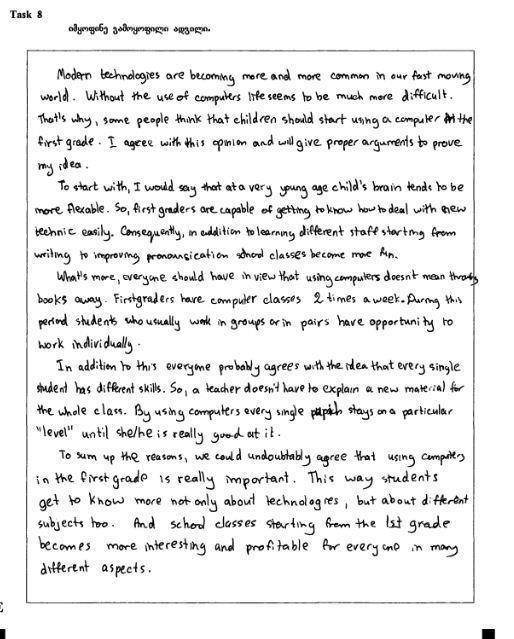 Task 8
იმყოფინე გამოყოფილი ადგილი.
Modern technologies are becoming more and more common in our fast moving
world. Without the use of computers life seems to be much more difficult.
That's why, some people think that children should start using a computer in the
first grade. I agree with this opinion and will give proper arguments to prove
my idea.
To start with, I would say that at a very young age child's brain tends to be
more flexable. So, first graders are capable of getting to know how to deal with new
technic easily. Consequently, in addition to learning different staff starting from
writing to improving pronounsication school classes become more fun.
What's more, everyone should have in view that using computers doesn't mean throwing
books away. Firstgraders have computer classes 2 times a week. During this
period students who usually work in groups or in pairs have opportunity to
work individually.
In addition to this everyone probably agrees with the idea that every single
student has different skills. So, a teacher doesn't have to explain a new material for
the whole class. By using computers every single stays on a particular
"level" until she/he is really good at it.
To sum up the reasons, we could undoubtably agree that using computers
in the first grade is really important. This way students
get to know more not only about technologies, but about different
subjects too. And school classes starting from the 1st grade
becomes more interesting and profitable for everyone in many
different aspects.